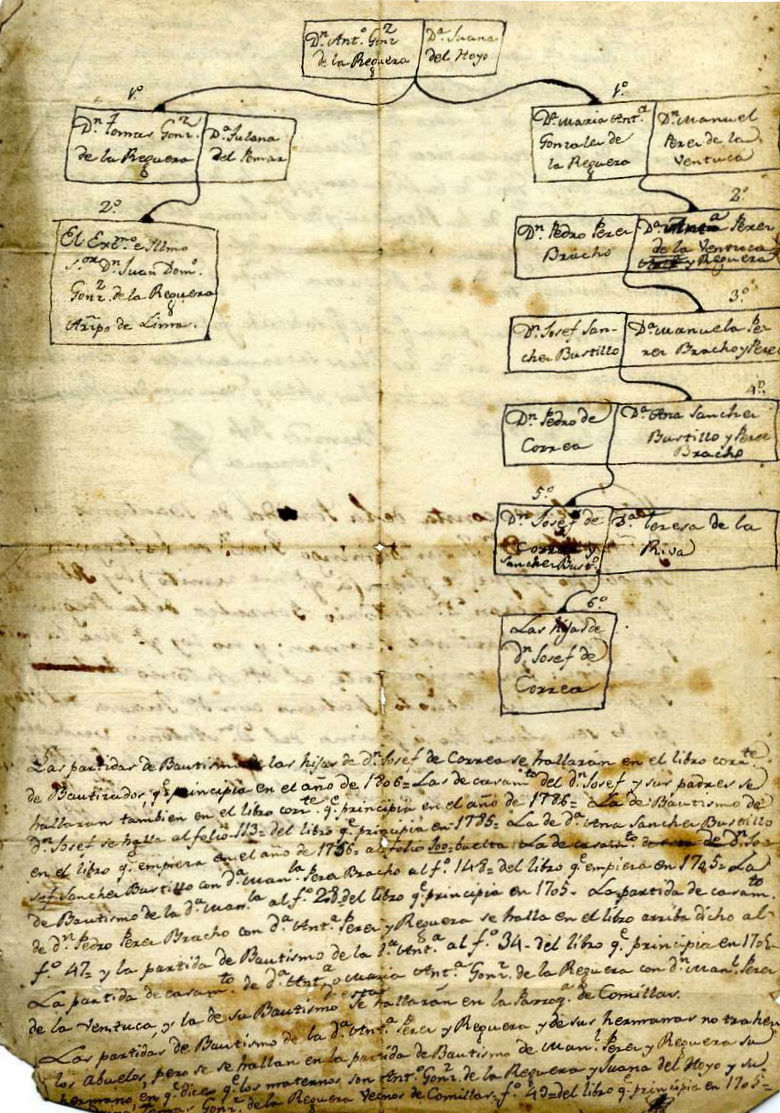 Dn. Anto. Gonz. de la Reguera
Da. Juana del Hoyo
1o.
Dn. Tomas Gonz. de la Reguera
Da. Juliana del Pomar
2o.
El Exmo. e Illmo
Sor. Dn. Juan Domo.
Gonz. de la Reguera
Arzpo de Lima.
1o.
Da. Maria Anta.
Gonzalez de
la Reguera
Dn. Manuel
Perez de la
Ventuca
2o.
Dn. Pedro Perez
Bracho
Da. Anta. Perez
de la Ventuca
y Reguera
3o.
Dn. Josef San-
chez Bustillo
Da. Manuela Pe-
rez Bracho y Perez
4o.
Dn. Pedro de
Correa
Da. Ana Sanchez
Bustillo y Perez
Bracho
5o.
Dn. Josef de
Correa y
Sanchez Busto.
Da. Teresa de la
Riva
6o.
Las hijas de
Dn. Josef de
Correa
Las partidas de Bautismo de las hijas de dn. Josef de Correa se hallarán en el libro corrte.
de Bautizados, qe. principia en el año de 1806= Las de casamto. del dn. Josef y sus padres se
hallaran tambien en el libro corrte. qe. principia en el año de 1786= La de Bautismo de
dn. Josef se halla al folio 113= del libro qe. principia en 1785= La de da. Ana Sanchez Bustillo
en el libro qe. empieza en el año de 1756= al folio 200= buelta: La de casamto. de dn. Jo-
sef Sanchez Bustillo con da. Manla. Perez Bracho al fo. 148= del libro qe. empieza en 1705= La
de Bautismo de la da. Manla. al fo. 28 del libro qe. principia en 1705- La partida de casamto.
de dn. Pedro Perez Bracho con da. Anta. Perez y Reguera se halla en el libro arriba dicho al
fo. 47= y la partida de Bautismo de la da. Anta. al fo. 34- del libro qe. principia en 1705=
La partida de casamto. de da. Anta. o Maria Anta. Gonz. de la Reguera con dn. Manl. Perez
de la Ventuca, y la de su Bautismo se hallarán en la Parroqa. de Comillas.
Las partidas de Bautismo de la da. Anta. Perez y Reguera y de sus hermanas no trahen
los Abuelos, pero se hallan en la partida de Bautismo de Manl. Perez y Reguera su
hermano, en qe. dice qe. los maternos son Anto. Gonz. de la Reguera y Juana del Hoyo y su
Gonz. de la Reguera Vecinos de Comillas= fo. 49= del libro qe. principia en 1705=